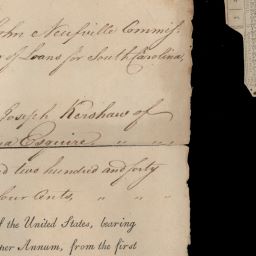 John Neufville Commiss:
of Loans for South Carolina,
Joseph Kershaw of
na Esquire, " " "
nd two hundred and forty
four Cents, " " "
f the United States, bearing
per Annum, from the first